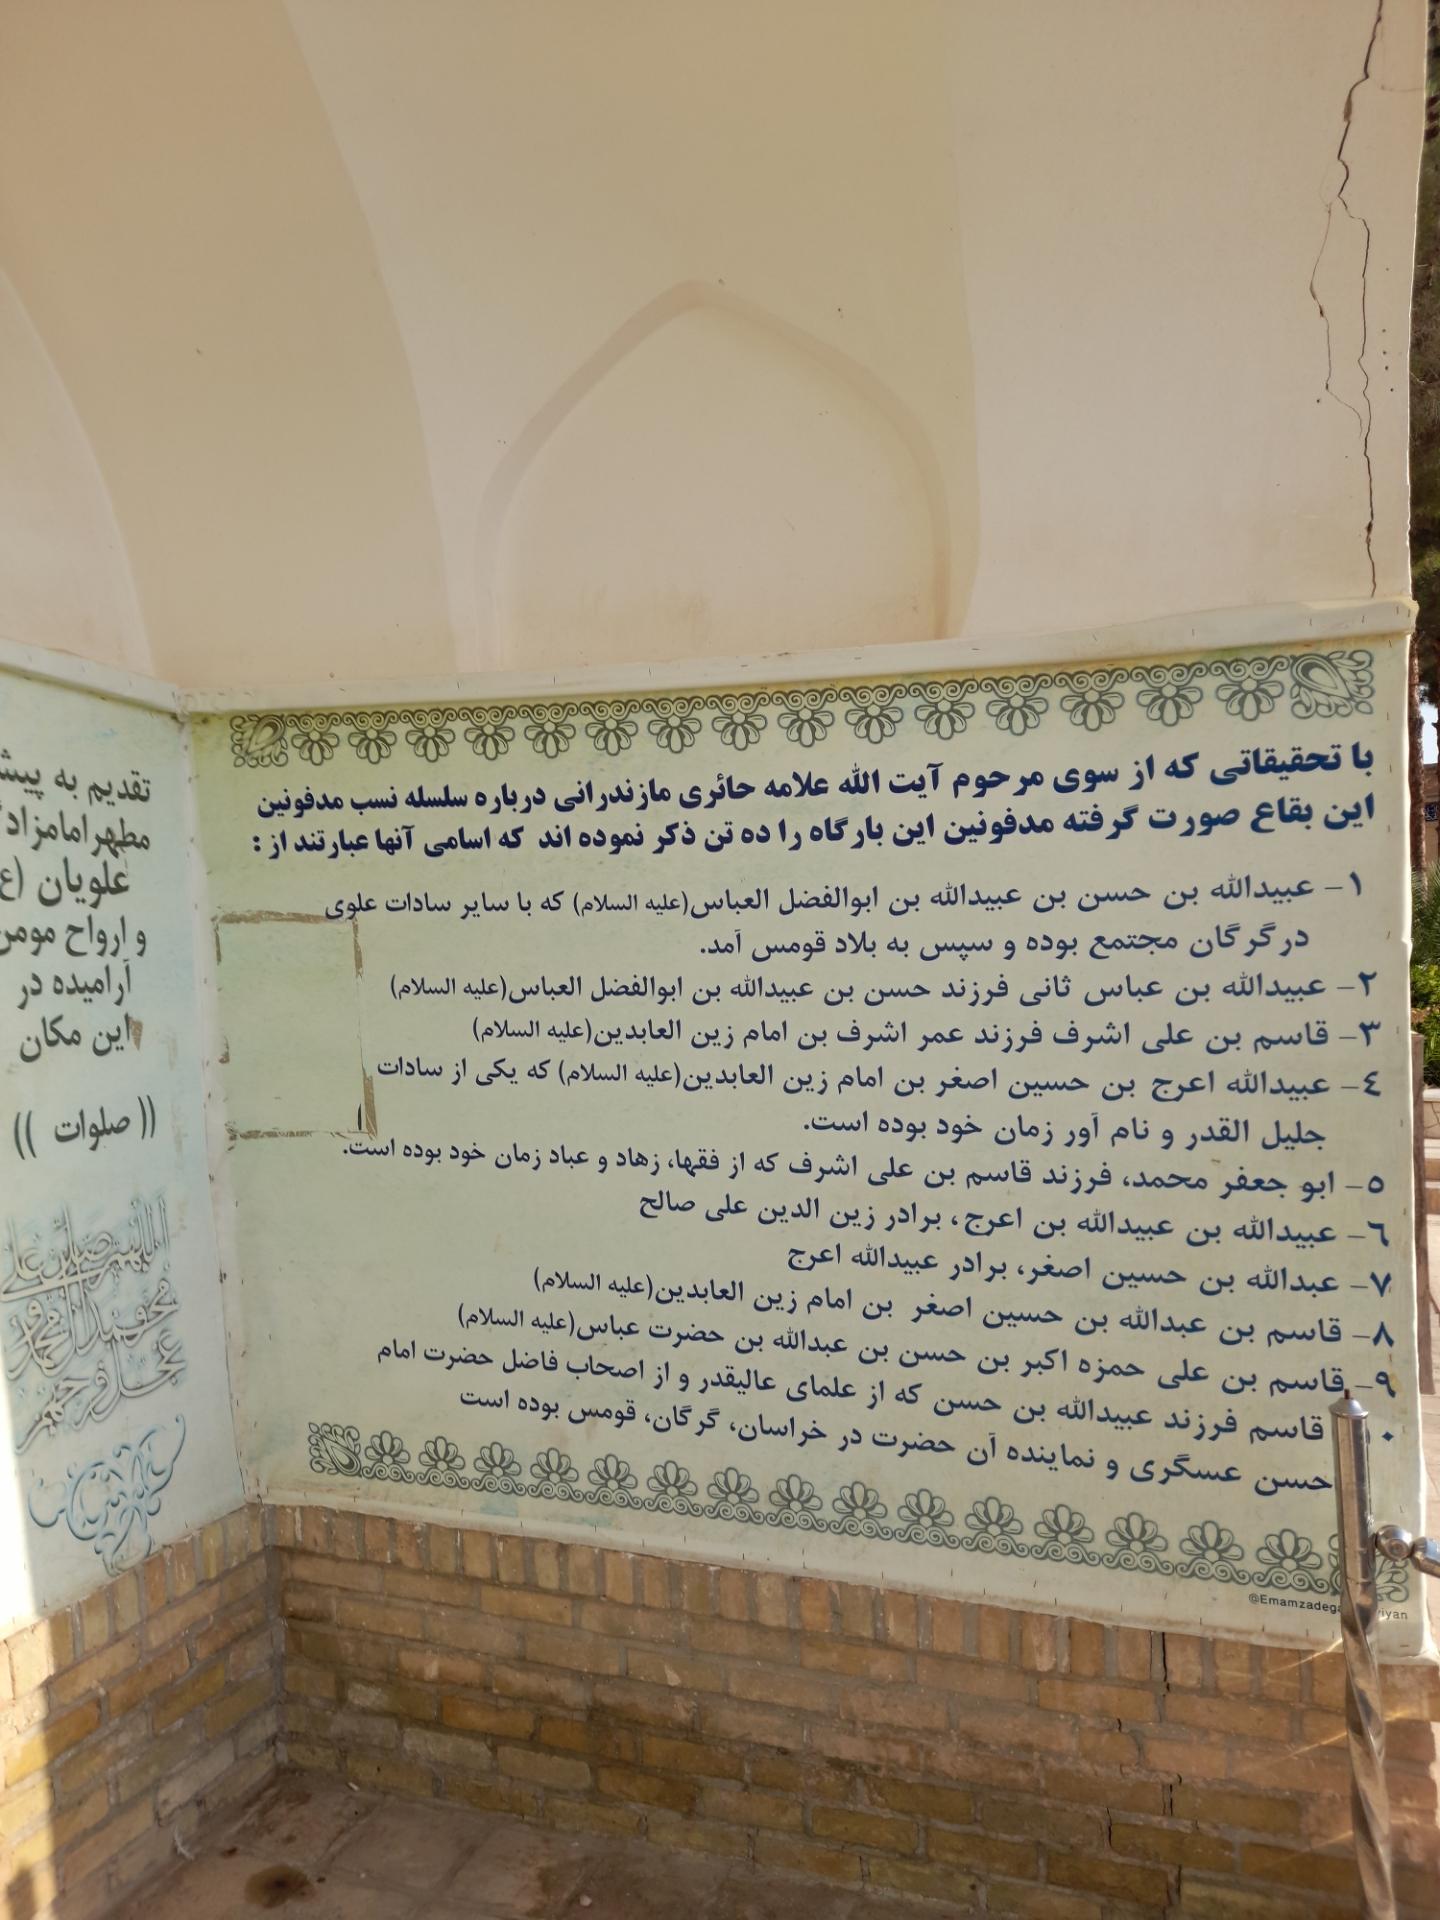 با تحقیقاتی که از سوی مرحوم آیت الله علامه حائری مازندرانی درباره سلسله نسب مدفونین
این بقاع صورت گرفته مدفونین این بارگاه را ده تن ذکر نموده اند که اسامی آنها عبارتند از :
۱- عبیدالله بن حسن بن عبیدالله بن ابوالفضل العباس(علیه السلام) که با سایر سادات علوی
در گرگان مجتمع بوده و سپس به بلاد قومس آمد.
۲- عبیدالله بن عباس ثانی فرزند حسن بن عبیدالله بن ابوالفضل العباس(علیه السلام)
۳- قاسم بن علی اشرف فرزند عمر اشرف بن امام زین العابدین(علیه السلام)
٤- عبیدالله اعرج بن حسین اصغر بن امام زین العابدین(علیه السلام) که یکی از سادات
جلیل القدر و نام آور زمان خود بوده است.
۵- ابو جعفر محمد، فرزند قاسم بن علی اشرف که از فقها، زهاد و عباد زمان خود بوده است.
٦- عبیدالله بن عبیدالله بن اعرج، برادر زین الدین علی صالح
۷- عبدالله بن حسین اصغر، برادر عبیدالله اعرج
۸- قاسم بن عبدالله بن حسین اصغر بن امام زین العابدین(علیه السلام)
۹- قاسم بن علی حمزه اکبر بن حسن بن عبدالله بن حضرت عباس(علیه السلام)
قاسم فرزند عبیدالله بن حسن که از علمای عالیقدر و از اصحاب فاضل حضرت امام
حسن عسگری و نماینده آن حضرت در خراسان، گرگان، قومس بوده است
تقدیم به
مطهر
علویان (ع
و ارواح
آرامیده در
این مکان
(( صلوات ))